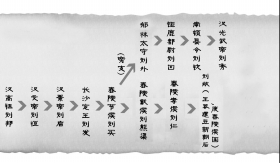 汉高祖刘邦
汉文帝刘恒
汉景帝刘启
长沙定王刘发
舂陵节侯刘买
(旁支)
郁林太守刘外
钜鹿都尉刘回
南顿县令刘钦
汉光武帝刘秀
舂陵戴侯刘熊渠
舂陵孝侯刘仁
刘敞(王莽建立新朝后
,废舂陵侯国)